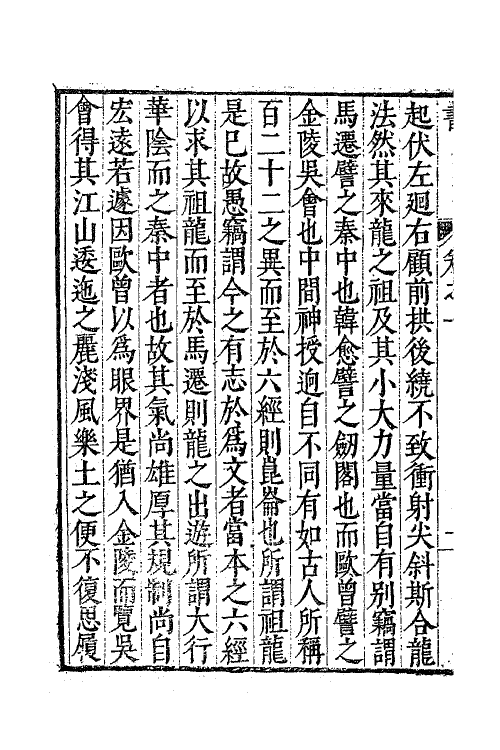 起伏左廻右顧前拱後繞不致衝射尖斜斯合龍
法然其來龍之祖及其小大力量當自有別竊謂
馬遷譬之秦中也韓愈譬之劒閣也而歐曾譬之
金陵吳會也中間神授逈自不同有如古人所稱
百二十二之異而至於六經則崑崙也所謂祖龍
是已故愚竊謂今之有志於爲文者當本之六經
以求其祖龍而至於馬遷則龍之出遊所謂大行
華陰而之秦中者也故其氣尚雄厚其規制尚自
宏遠若遽因歐曾以爲眼界是猶入金陵而覽吳
會得其江山逶迤之麗淺風樂土之便不復思履